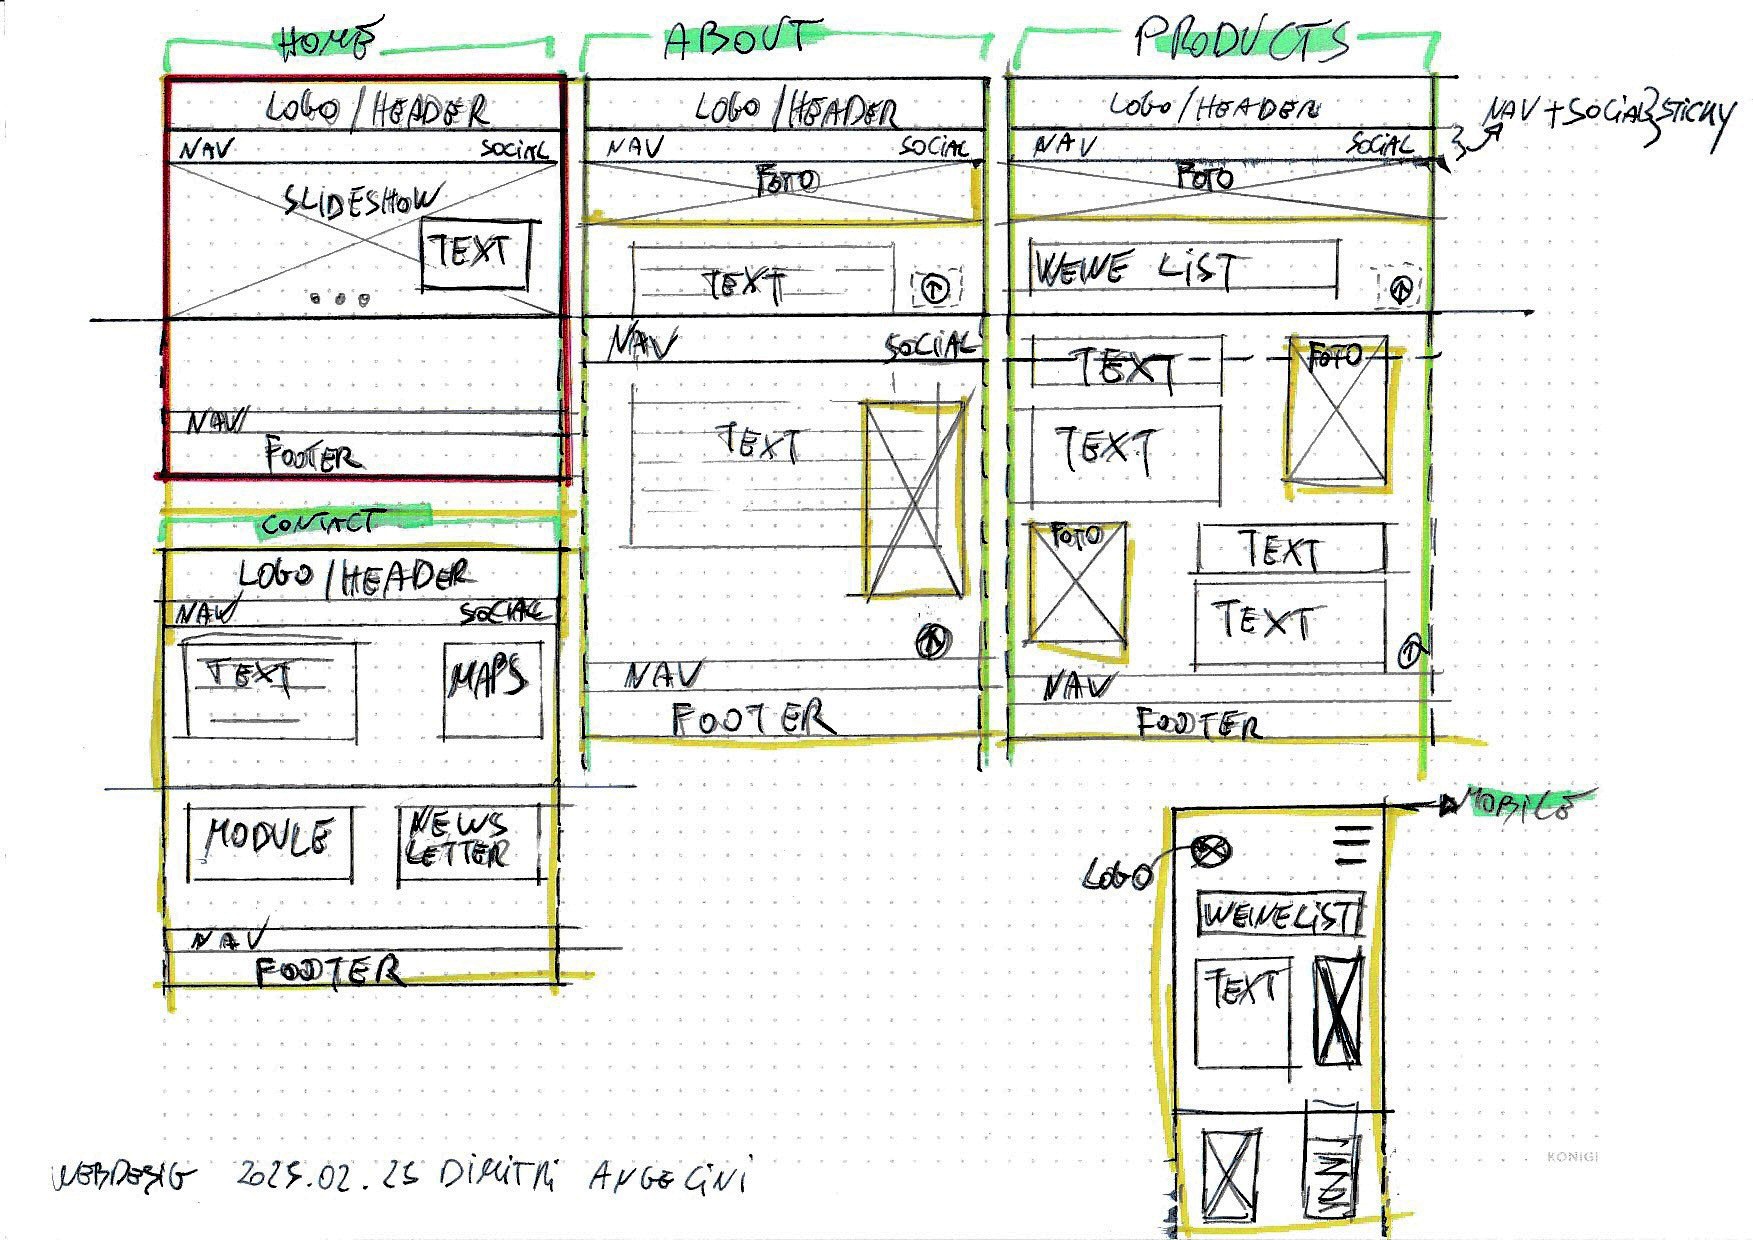 HOME
LOGO/HEADER
NAV SOCIAL
SLIDESHOW
TEXT
NAV
FOOTER
CONTACT
LOGO/HEADER
NAV SOCIAL
TEXT
MAPS
MODULE
NEWS
LETTER
NAV
FOOTER
ABOUT
LOGO/HEADER
NAV SOCIAL
FOTO
TEXT
NAV SOCIAL
TEXT
NAV
FOOTER
PRODUCTS
LOGO/HEADER
NAV SOCIAL
NAV + SOCIAL STICKY
FOTO
WEINE LIST
TEXT
FOTO
TEXT
FOTO
TEXT
TEXT
NAV
FOOTER
MOBILE
LOGO
WEINE LIST
TEXT
KONIGI
WEBDESIG 2025.02.25 DIMITRI ANGELINI